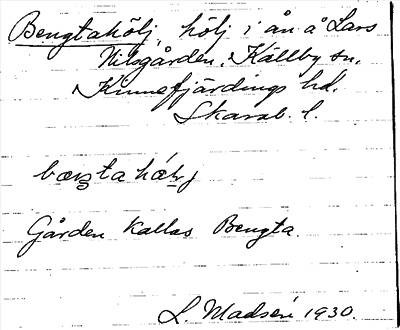 Bengtahölj, hölj i ån å Lars
Nilsgården, Källby sn,
Kinnefjärdings hd.
Skarab. l.
Gården kallas Bengta.
L. Madsén 1930.